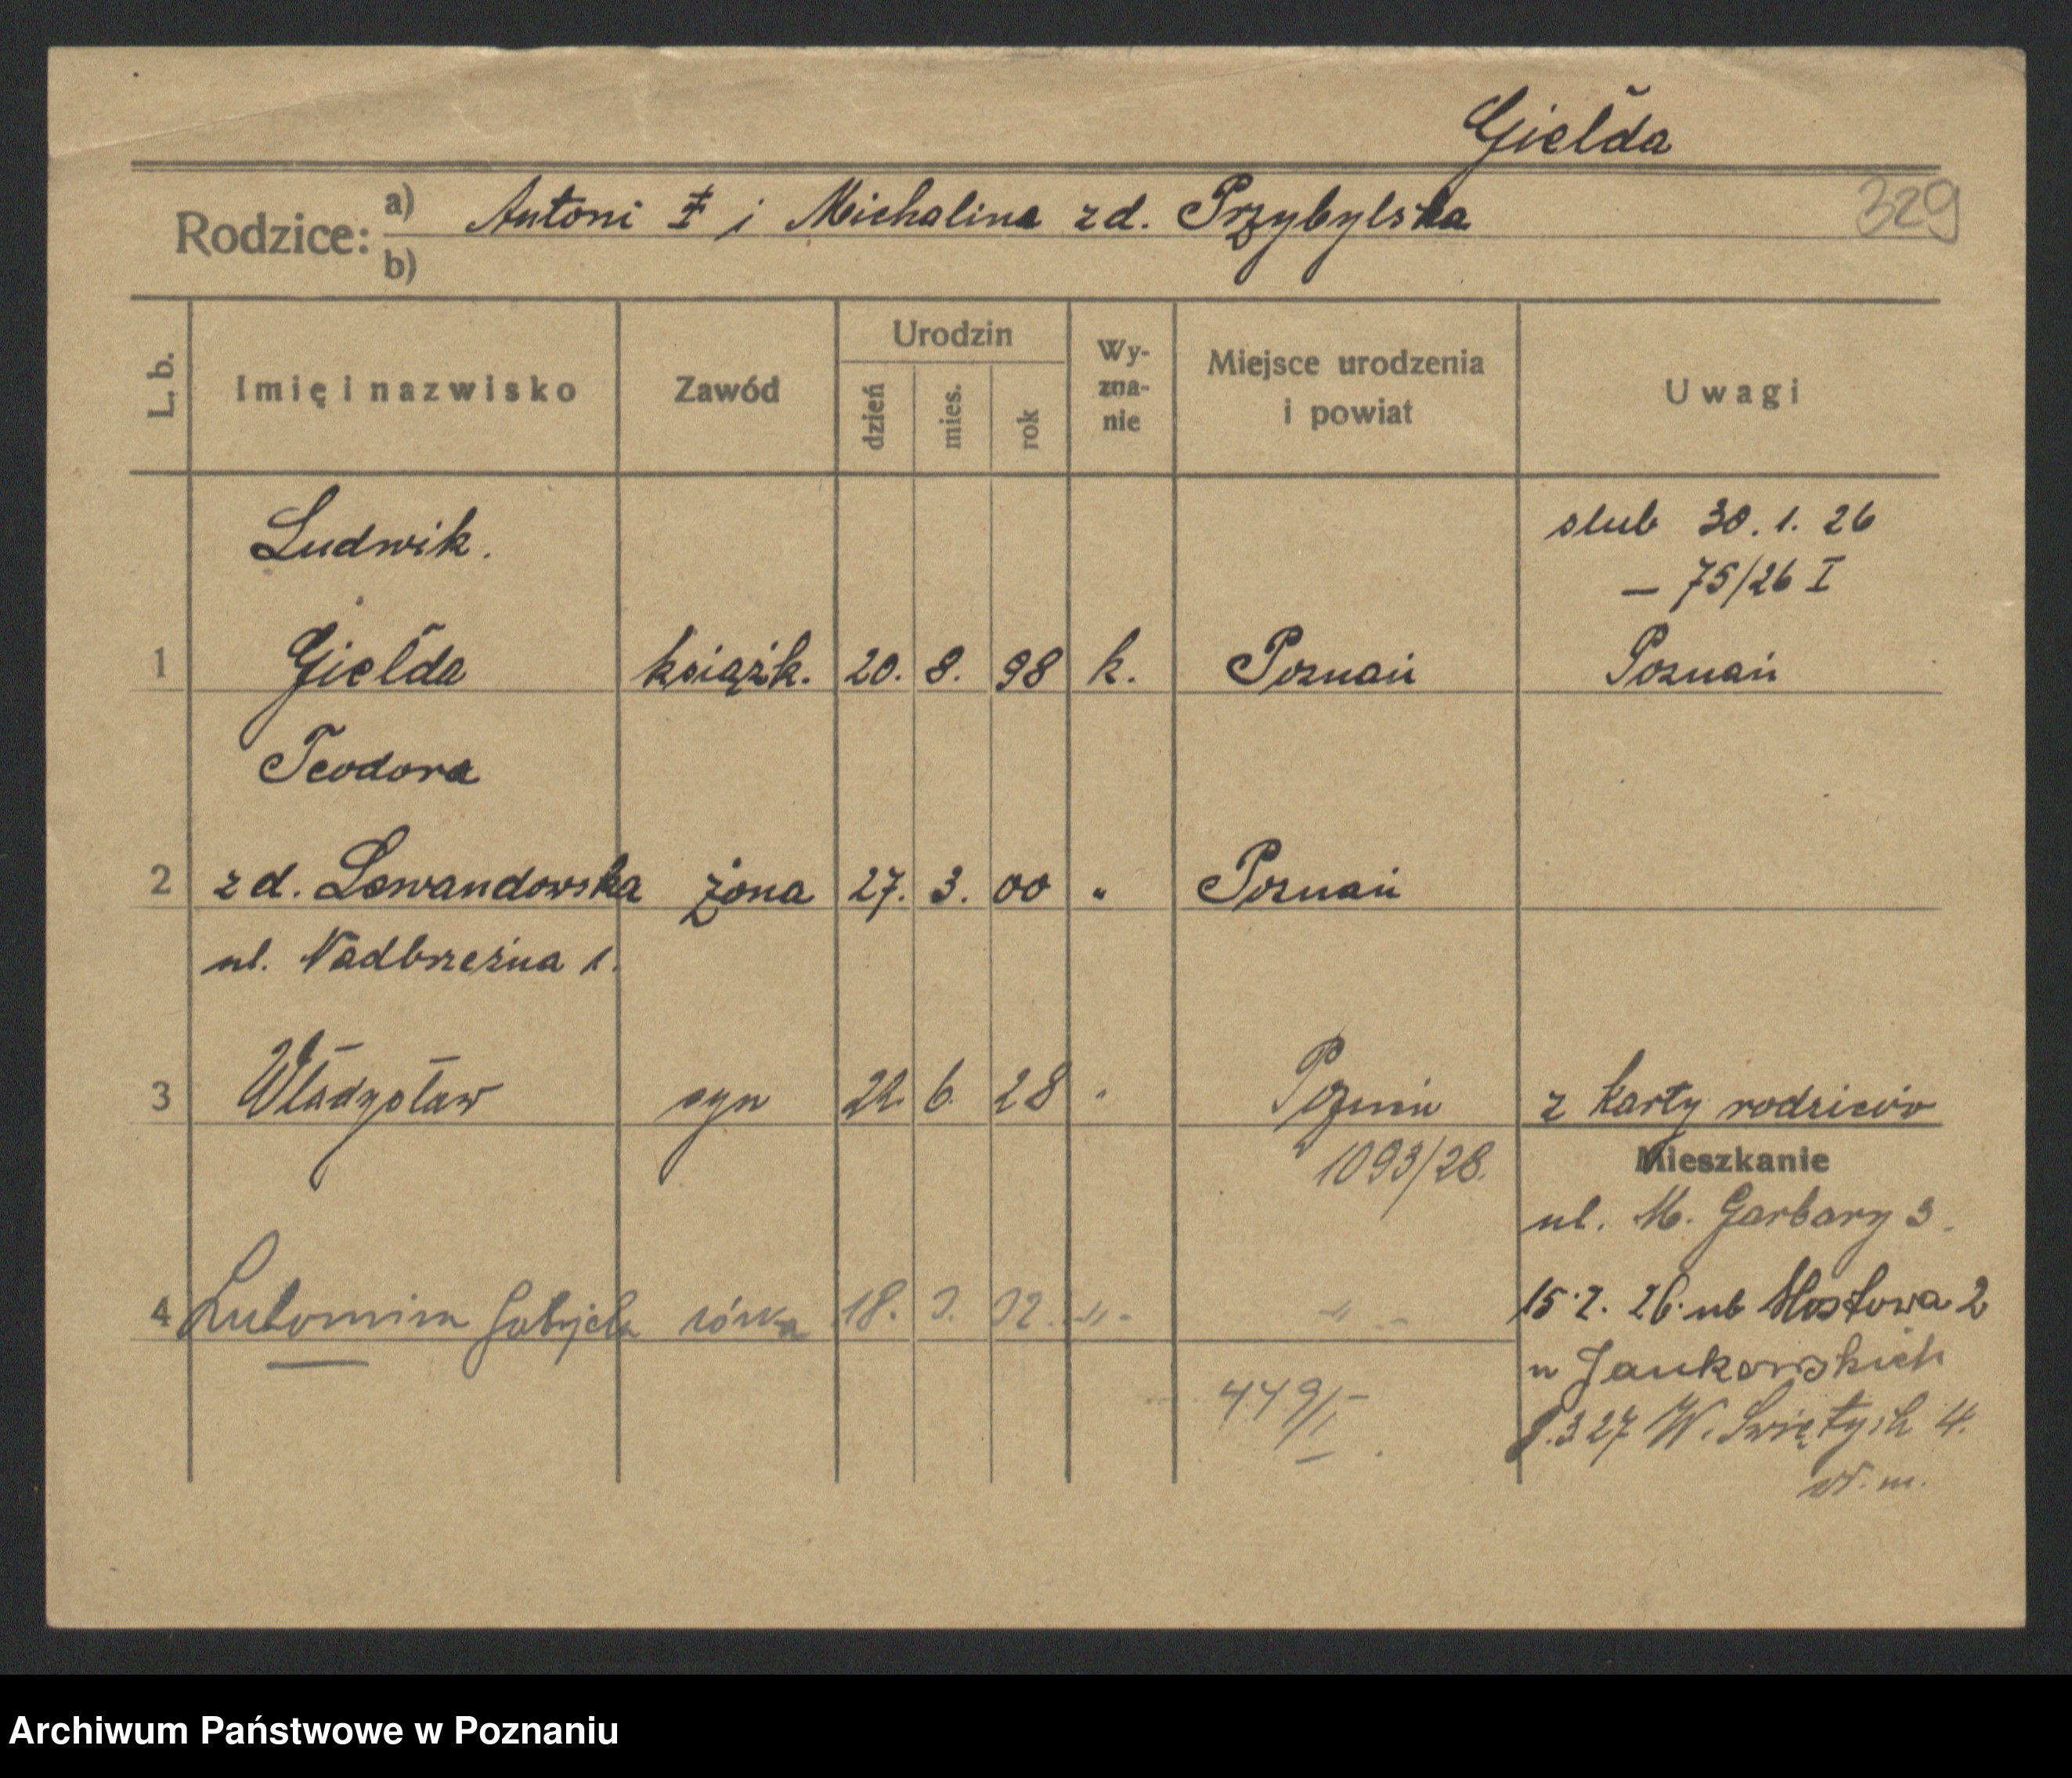 Giełda
329
Rodzice: a) Antoni ‡ i Michalina zd. Przybylska
b)
L. b.
Imię i nazwisko
Zawód
Urodzin
dzień
mies.
rok
Wy-
zna-
nie
Miejsce urodzenia
i powiat
Uwagi
Ludwik.
slub 30. 1. 26
— 75/26 I
1 Giełda książk. 20. 8. 98 k. Poznań Poznań
Teodora
2 zd. Lewandowska żona 27. 3. 00 " Poznań
ul. Nadbrzeżna 1.
3 Władysław syn 22. 6. 28 " Poznań z Karty rodziców
1093/28.
Mieszkanie
ul. M. Garbary 3.
4 Gabryela córka 18. " "
15.2.26. ul Mostowa 2
u Jankowskich
8.3 27 W. Świętych 4.
449/I